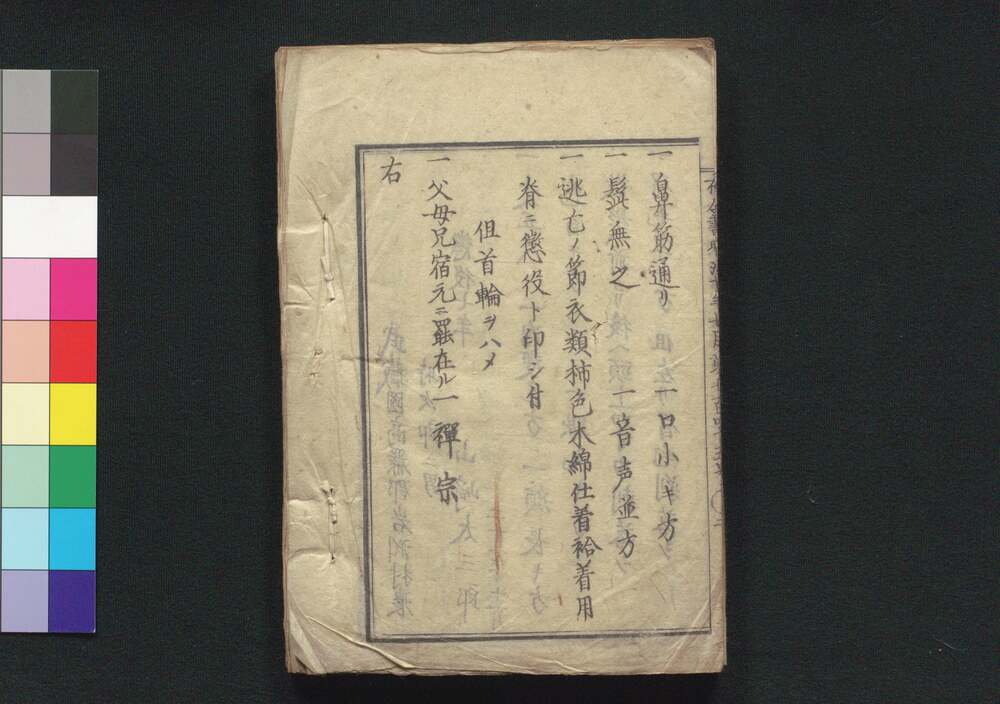 一鼻筋通リ 一口小キ方
一髭無之 一音声並方
一逃亡ノ節衣類柿色木綿仕着袷着用
脊ニ懲役ト印シ付
但首輪ヲハメ
一父母兄宿元ニ罷在ル 一禅宗
右